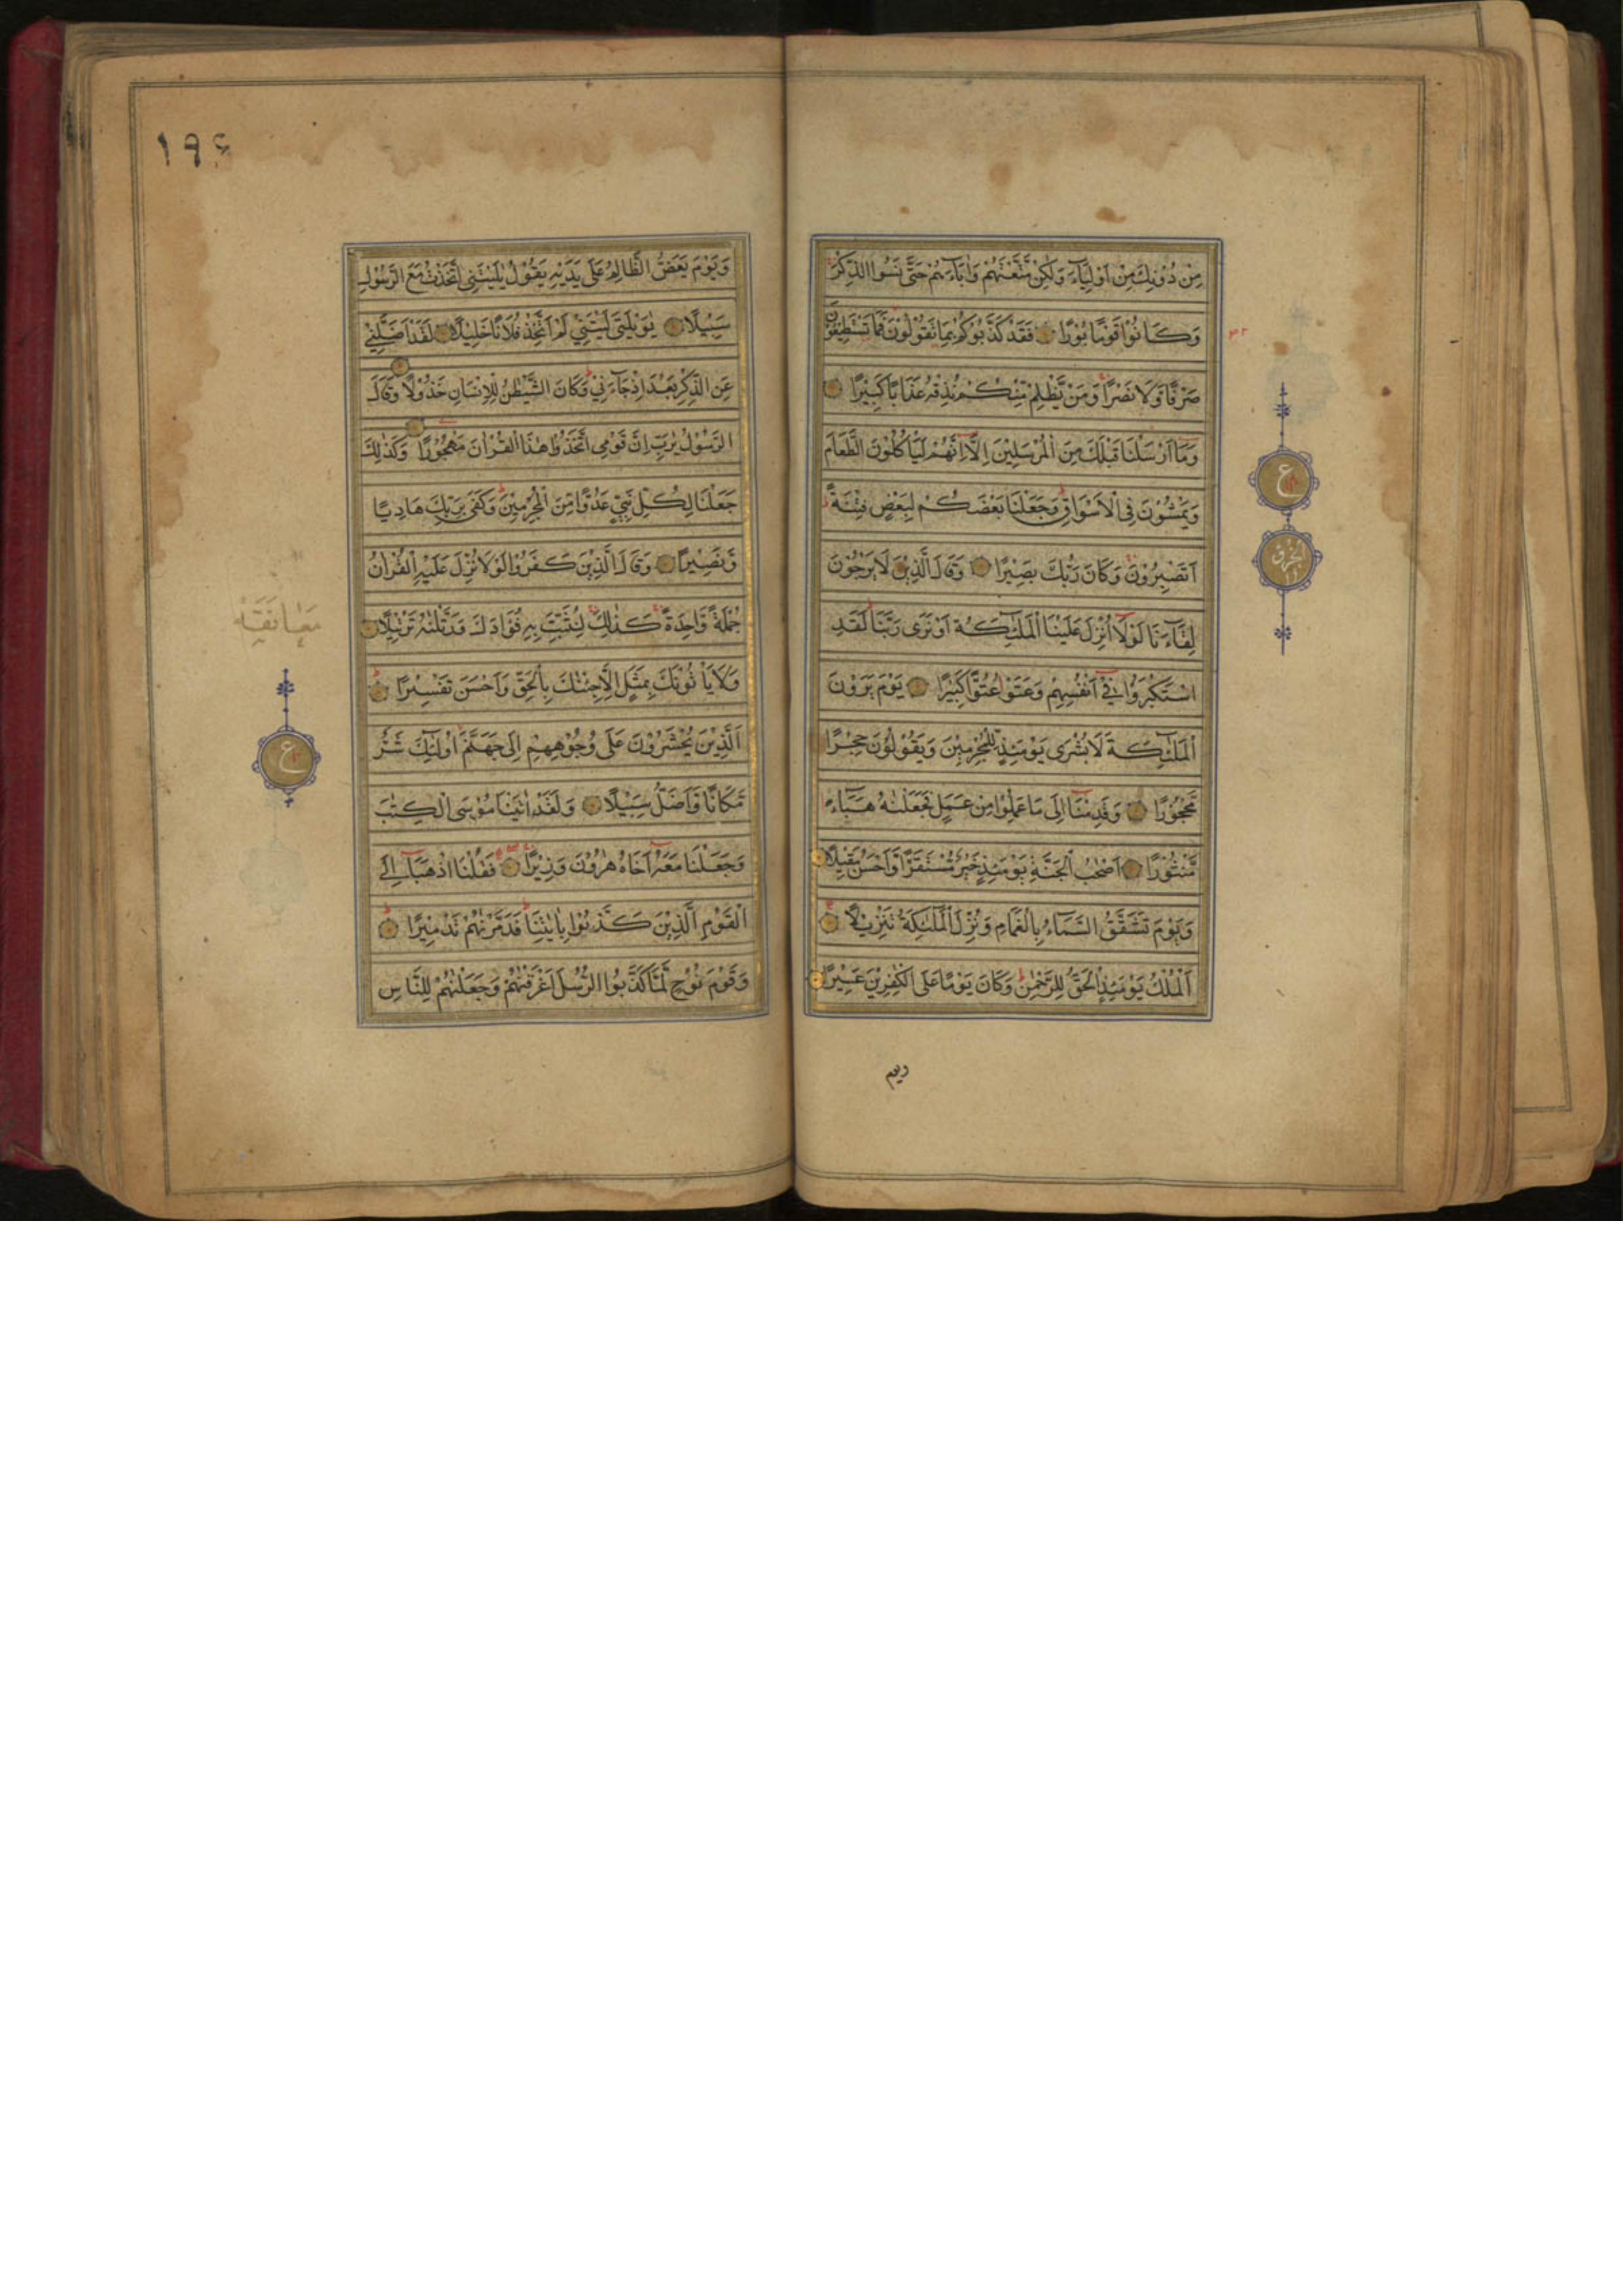 مِنْ دُوْنِكَ مِنْ اَوْلِيَآءَ وَلٰكِنْ مَّتَّعْتَهُمْ وَاٰبَآءَهُمْ حَتّٰى نَسُوا الذِّكْرَ
وَكَانُوْا قَوْمًا بُوْرًا فَقَدْ كَذَّبُوْكُمْ بِمَا تَقُوْلُوْنَ فَمَا تَسْتَطِيْعُوْنَ
صَرْفًا وَّلَا نَصْرًا وَمَنْ يَّظْلِمْ مِّنْكُمْ نُذِقْهُ عَذَابًا كَبِيْرًا
وَمَا اَرْسَلْنَا قَبْلَكَ مِنَ الْمُرْسَلِيْنَ اِلَّا اِنَّهُمْ لَيَأْكُلُوْنَ الطَّعَامَ
وَيَمْشُوْنَ فِى الْاَسْوَاقِ وَجَعَلْنَا بَعْضَكُمْ لِبَعْضٍ فِتْنَةً
اَتَصْبِرُوْنَ وَكَانَ رَبُّكَ بَصِيْرًا وَقَالَ الَّذِيْنَ لَا يَرْجُوْنَ
لِقَآءَنَا لَوْلَا اُنْزِلَ عَلَيْنَا الْمَلٰٓئِكَةُ اَوْ نَرٰى رَبَّنَا لَقَدِ
اسْتَكْبَرُوْا فِىْ اَنْفُسِهِمْ وَعَتَوْ عُتُوًّا كَبِيْرًا يَوْمَ يَرَوْنَ
الْمَلٰٓئِكَةَ لَا بُشْرٰى يَوْمَئِذٍ لِّلْمُجْرِمِيْنَ وَيَقُوْلُوْنَ حِجْرًا
مَّحْجُوْرًا وَقَدِمْنَا اِلٰى مَا عَمِلُوْا مِنْ عَمَلٍ فَجَعَلْنٰهُ هَبَآءً
مَّنْثُوْرًا اَصْحٰبُ الْجَنَّةِ يَوْمَئِذٍ خَيْرٌ مُّسْتَقَرًّا وَّاَحْسَنُ مَقِيْلًا
وَيَوْمَ تَشَقَّقُ السَّمَآءُ بِالْغَمَامِ وَنُزِّلَ الْمَلٰٓئِكَةُ تَنْزِيْلًا
اَلْمُلْكُ يَوْمَئِذِ الْحَقُّ لِلرَّحْمٰنِ وَكَانَ يَوْمًا عَلَى الْكٰفِرِيْنَ عَسِيْرًا
ويوم
ع
١٩٤
وَيَوْمَ يَعَضُّ الظَّالِمُ عَلٰى يَدَيْهِ يَقُوْلُ يٰلَيْتَنِى اتَّخَذْتُ مَعَ الرَّسُوْلِ
سَبِيْلًا يٰوَيْلَتٰى لَيْتَنِىْ لَمْ اَتَّخِذْ فُلَانًا خَلِيْلًا لَقَدْ اَضَلَّنِىْ
عَنِ الذِّكْرِ بَعْدَ اِذْ جَآءَنِىْ وَكَانَ الشَّيْطٰنُ لِلْاِنْسَانِ خَذُوْلًا وَقَالَ
الرَّسُوْلُ يٰرَبِّ اِنَّ قَوْمِى اتَّخَذُوْا هٰذَا الْقُرْاٰنَ مَهْجُوْرًا وَكَذٰلِكَ
جَعَلْنَا لِكُلِّ نَبِىٍّ عَدُوًّا مِّنَ الْمُجْرِمِيْنَ وَكَفٰى بِرَبِّكَ هَادِيًا
وَّنَصِيْرًا وَقَالَ الَّذِيْنَ كَفَرُوْا لَوْلَا نُزِّلَ عَلَيْهِ الْقُرْاٰنُ
جُمْلَةً وَّاحِدَةً كَذٰلِكَ لِنُثَبِّتَ بِهٖ فُؤَادَكَ وَرَتَّلْنٰهُ تَرْتِيْلًا
وَلَا يَأْتُوْنَكَ بِمَثَلٍ اِلَّا جِئْنٰكَ بِالْحَقِّ وَاَحْسَنَ تَفْسِيْرًا
اَلَّذِيْنَ يُحْشَرُوْنَ عَلٰى وُجُوْهِهِمْ اِلٰى جَهَنَّمَ اُولٰٓئِكَ شَرٌّ
مَّكَانًا وَّاَضَلُّ سَبِيْلًا وَلَقَدْ اٰتَيْنَا مُوْسَى الْكِتٰبَ
وَجَعَلْنَا مَعَهٗ اَخَاهُ هٰرُوْنَ وَزِيْرًا فَقُلْنَا اذْهَبَا اِلَى
الْقَوْمِ الَّذِيْنَ كَذَّبُوْا بِاٰيٰتِنَا فَدَمَّرْنٰهُمْ تَدْمِيْرًا
وَقَوْمَ نُوْحٍ لَّمَّا كَذَّبُوا الرُّسُلَ اَغْرَقْنٰهُمْ وَجَعَلْنٰهُمْ لِلنَّاسِ
معانقة
ع